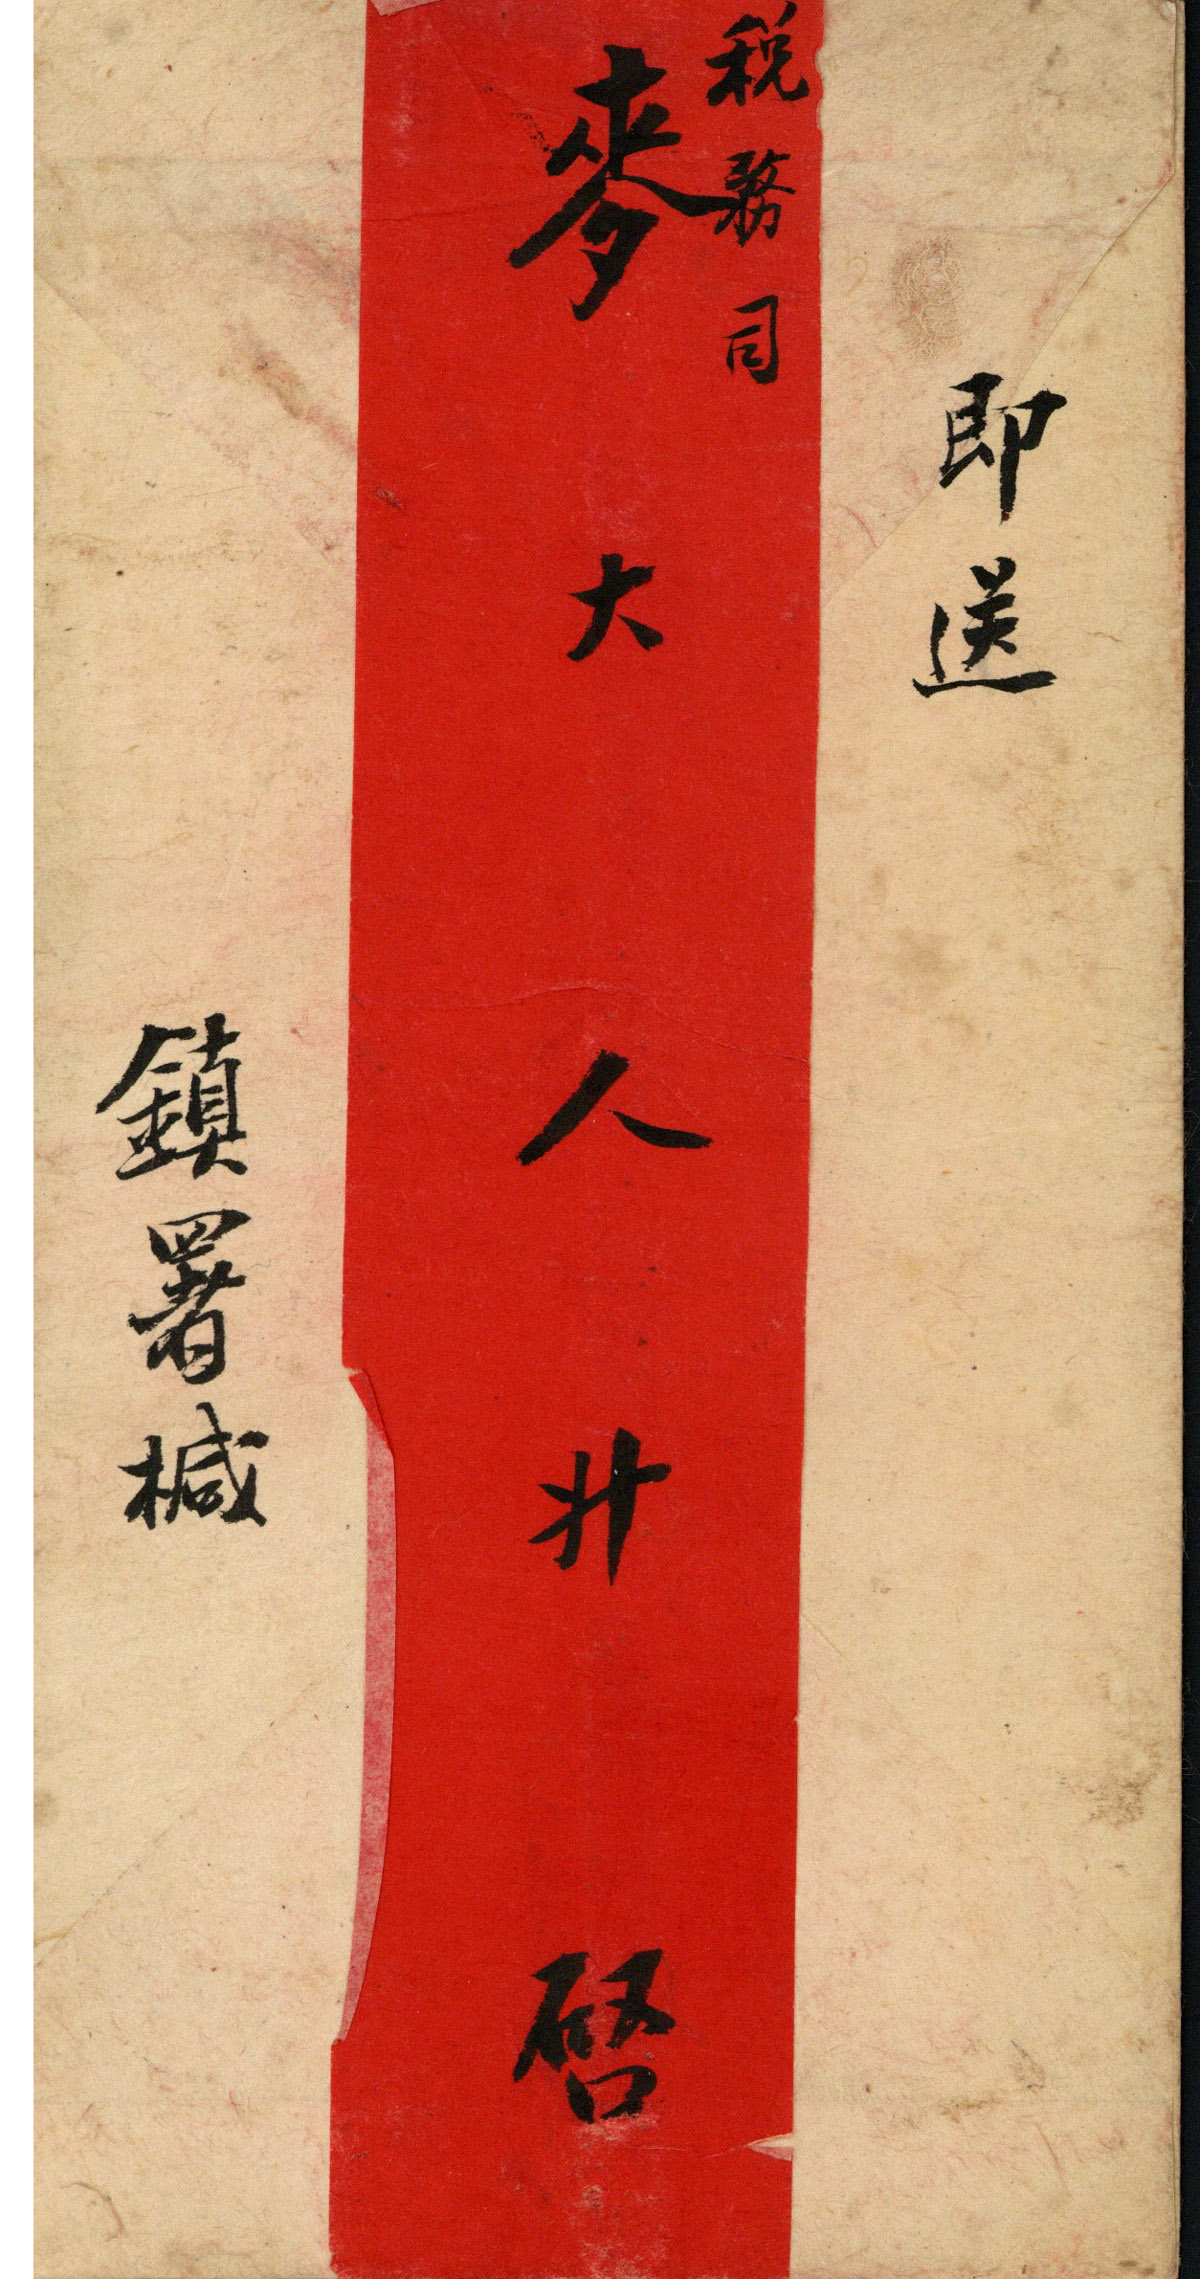 即送
税務司
麥大人升啓
鎮署椷